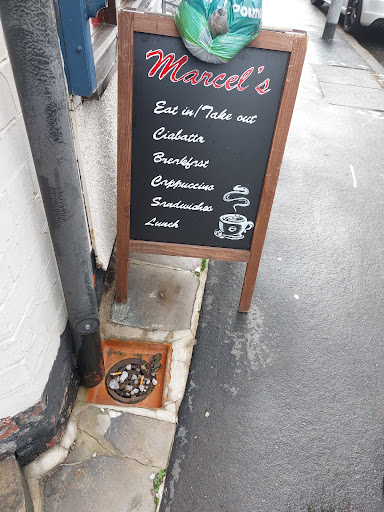 Marcel's
Eat in/Take out
Ciabatta
Breakfast
Cappuccino
Sandwiches
Lunch